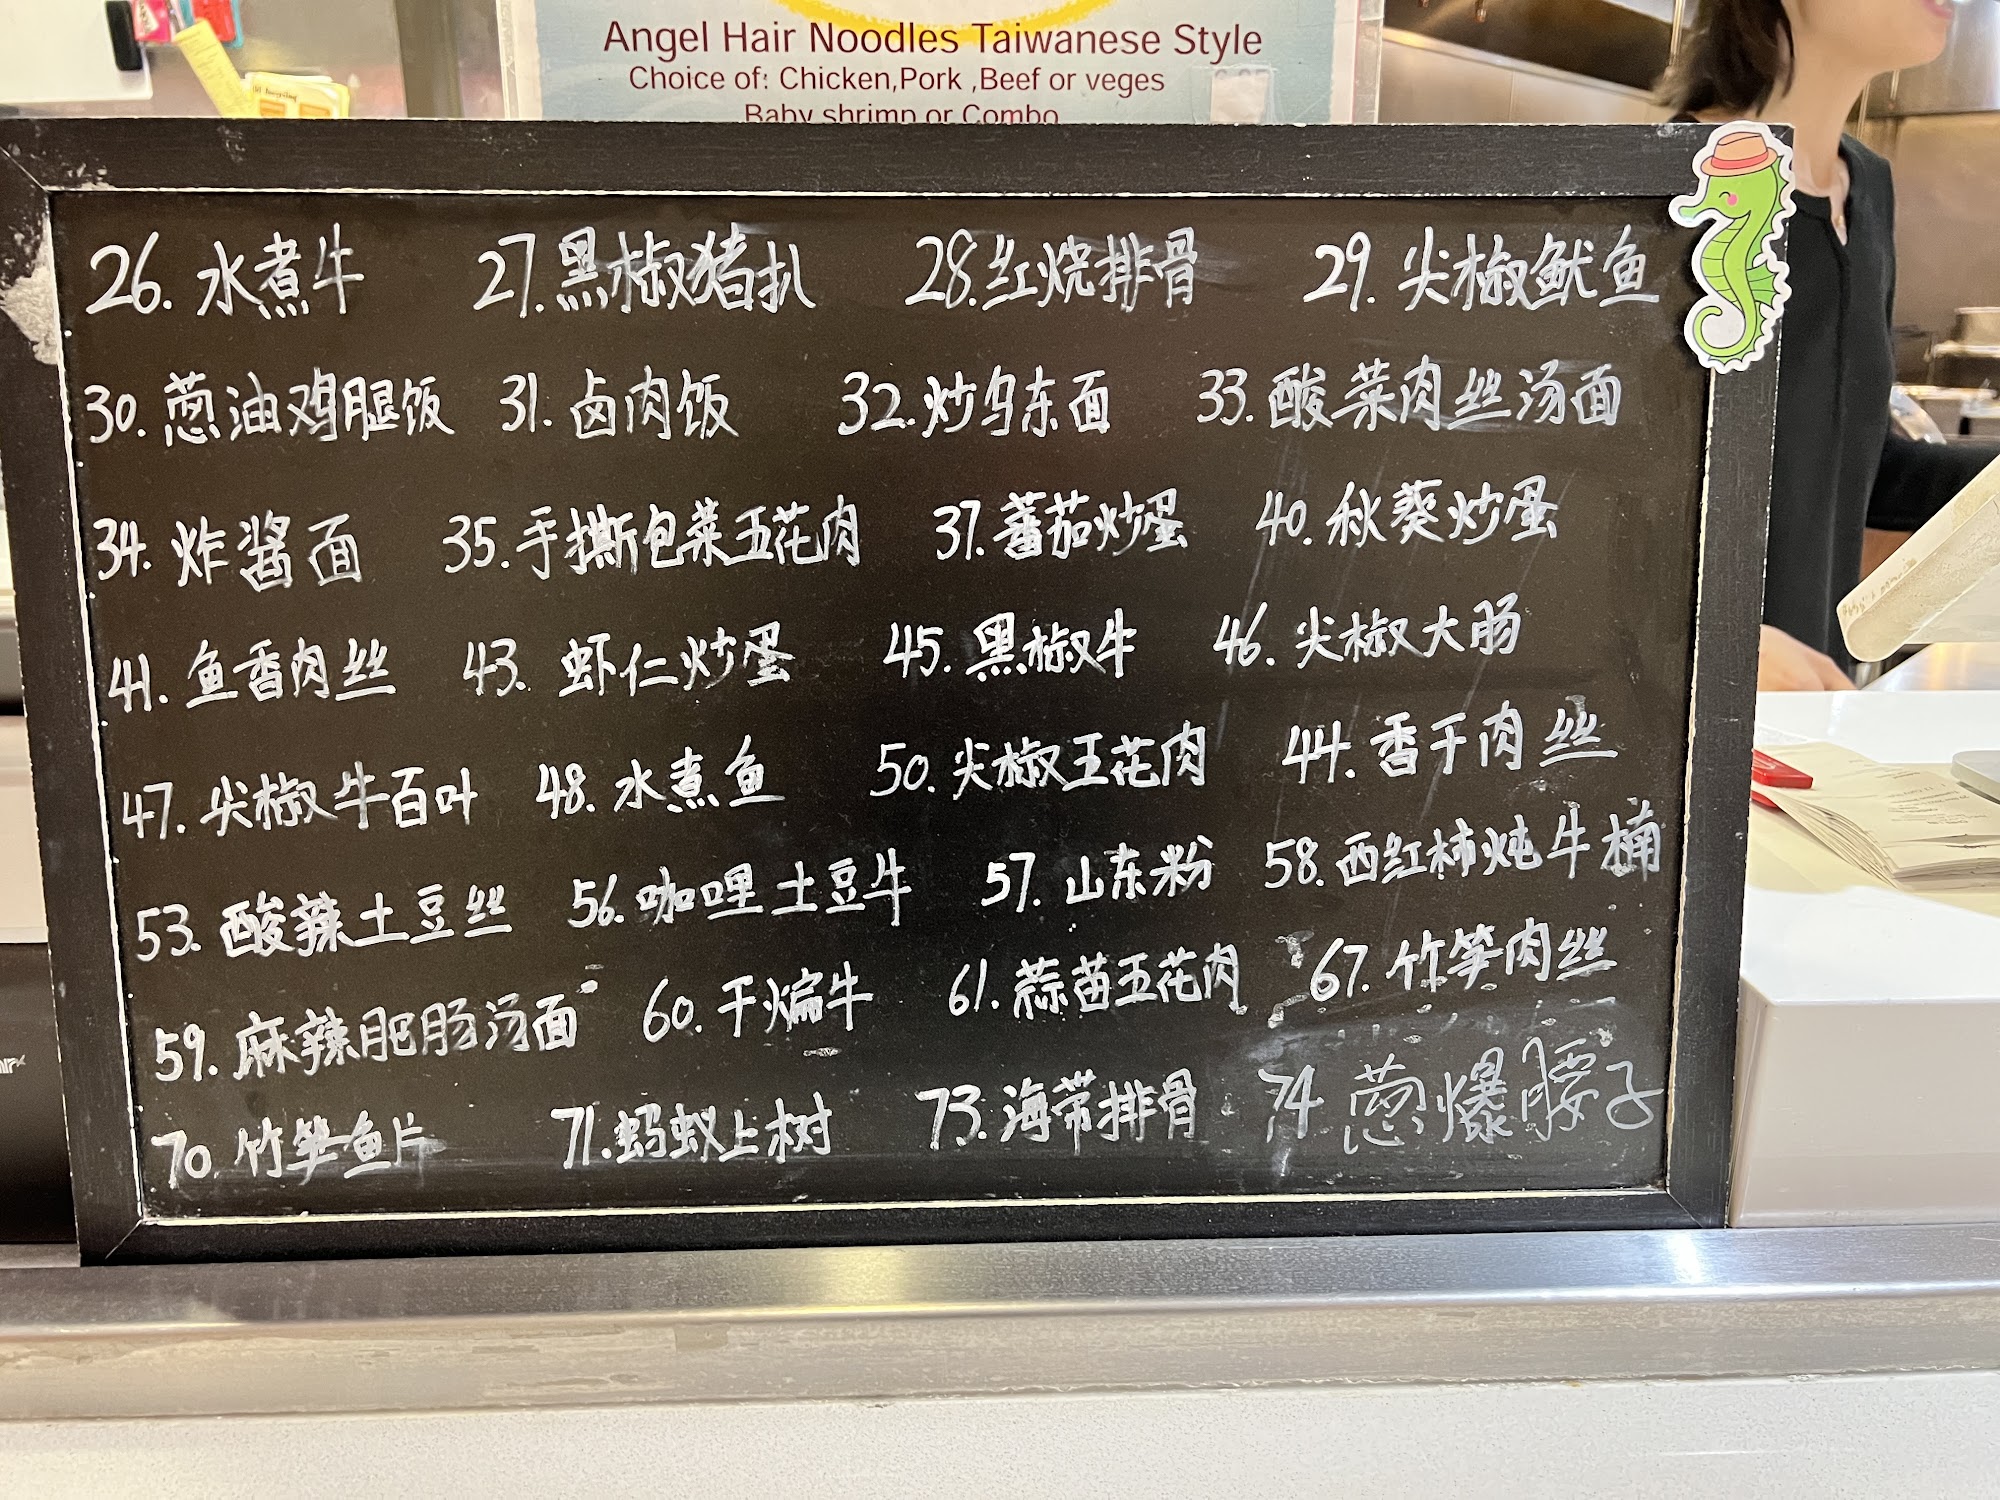 Angel Hair Noodles Taiwanese Style
Choice of: Chicken,Pork ,Beef or veges
Baby shrimp or Combo
26. 水煮牛 27. 黑椒猪扒 28. 红烧排骨 29. 尖椒鱿鱼
30. 葱油鸡腿饭 31. 卤肉饭 32. 炒乌东面 33. 酸菜肉丝汤面
34. 炸酱面 35. 手撕包菜五花肉 37. 蕃茄炒蛋 40. 秋葵炒蛋
41. 鱼香肉丝 43. 虾仁炒蛋 45. 黑椒牛 46. 尖椒大肠
47. 尖椒牛百叶 48. 水煮鱼 50. 尖椒五花肉 44. 香干肉丝
53. 酸辣土豆丝 56. 咖喱土豆牛 57. 山东粉 58. 西红柿炖牛楠
59. 麻辣肥肠汤面 60. 干煸牛 61. 蒜苗五花肉 67. 竹笋肉丝
70 竹笋鱼片 71. 蚂蚁上树 73. 海带排骨 74 葱爆腰子